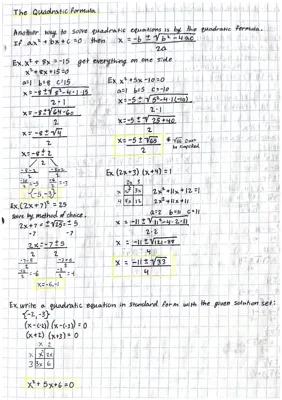 The Quadratic formula
Another way to solve quadratic equations is by the quadratic formula.
If ax² + bx + c = 0 then x = -b ± √b² - 4ac
2a
Ex. x² + 8x = -15 get everything on one side
x² + 8x + 15 = 0
a=1 b=8 c=15
x = -8 ± √8² - 4·1·15
2·1
x = -8 ± √64-60
2
x = -8 ± √4
2
x = -8 ± 2
2
{-5,-3}
Ex. x² + 5x - 10 = 0
a=1 b=5 c=-10
x = -5 ± √5² - 4·1(-10)
2·1
x = -5 ± √25+40
2
x = -5 ± √65
2
Ex. (2x+7)² = 25
solve by method of choice.
2x+7 = ±√25 = ±5
-7 -7
2x = -7 ± 5
2 2
x = -6, -1
Ex (2x+3)(x+4) = 1
2x 3
x 2x² 3x
4 8x 12
2x² + 11x + 12 = 1
2x² + 11x + 11
a=2 b=11 c=11
x = -11 ± √11² - 4·2·11
2·2
x = -11 ± √121-88
4
x = -11 ± √33
4
Ex. write a quadratic equation in standard form with the given solution set:
{-2, -3}
(x-(-2))(x-(-3)) = 0
(x+2)(x+3) = 0
x 2
x x² 2x
3 3x 6
x² + 5x + 6 = 0